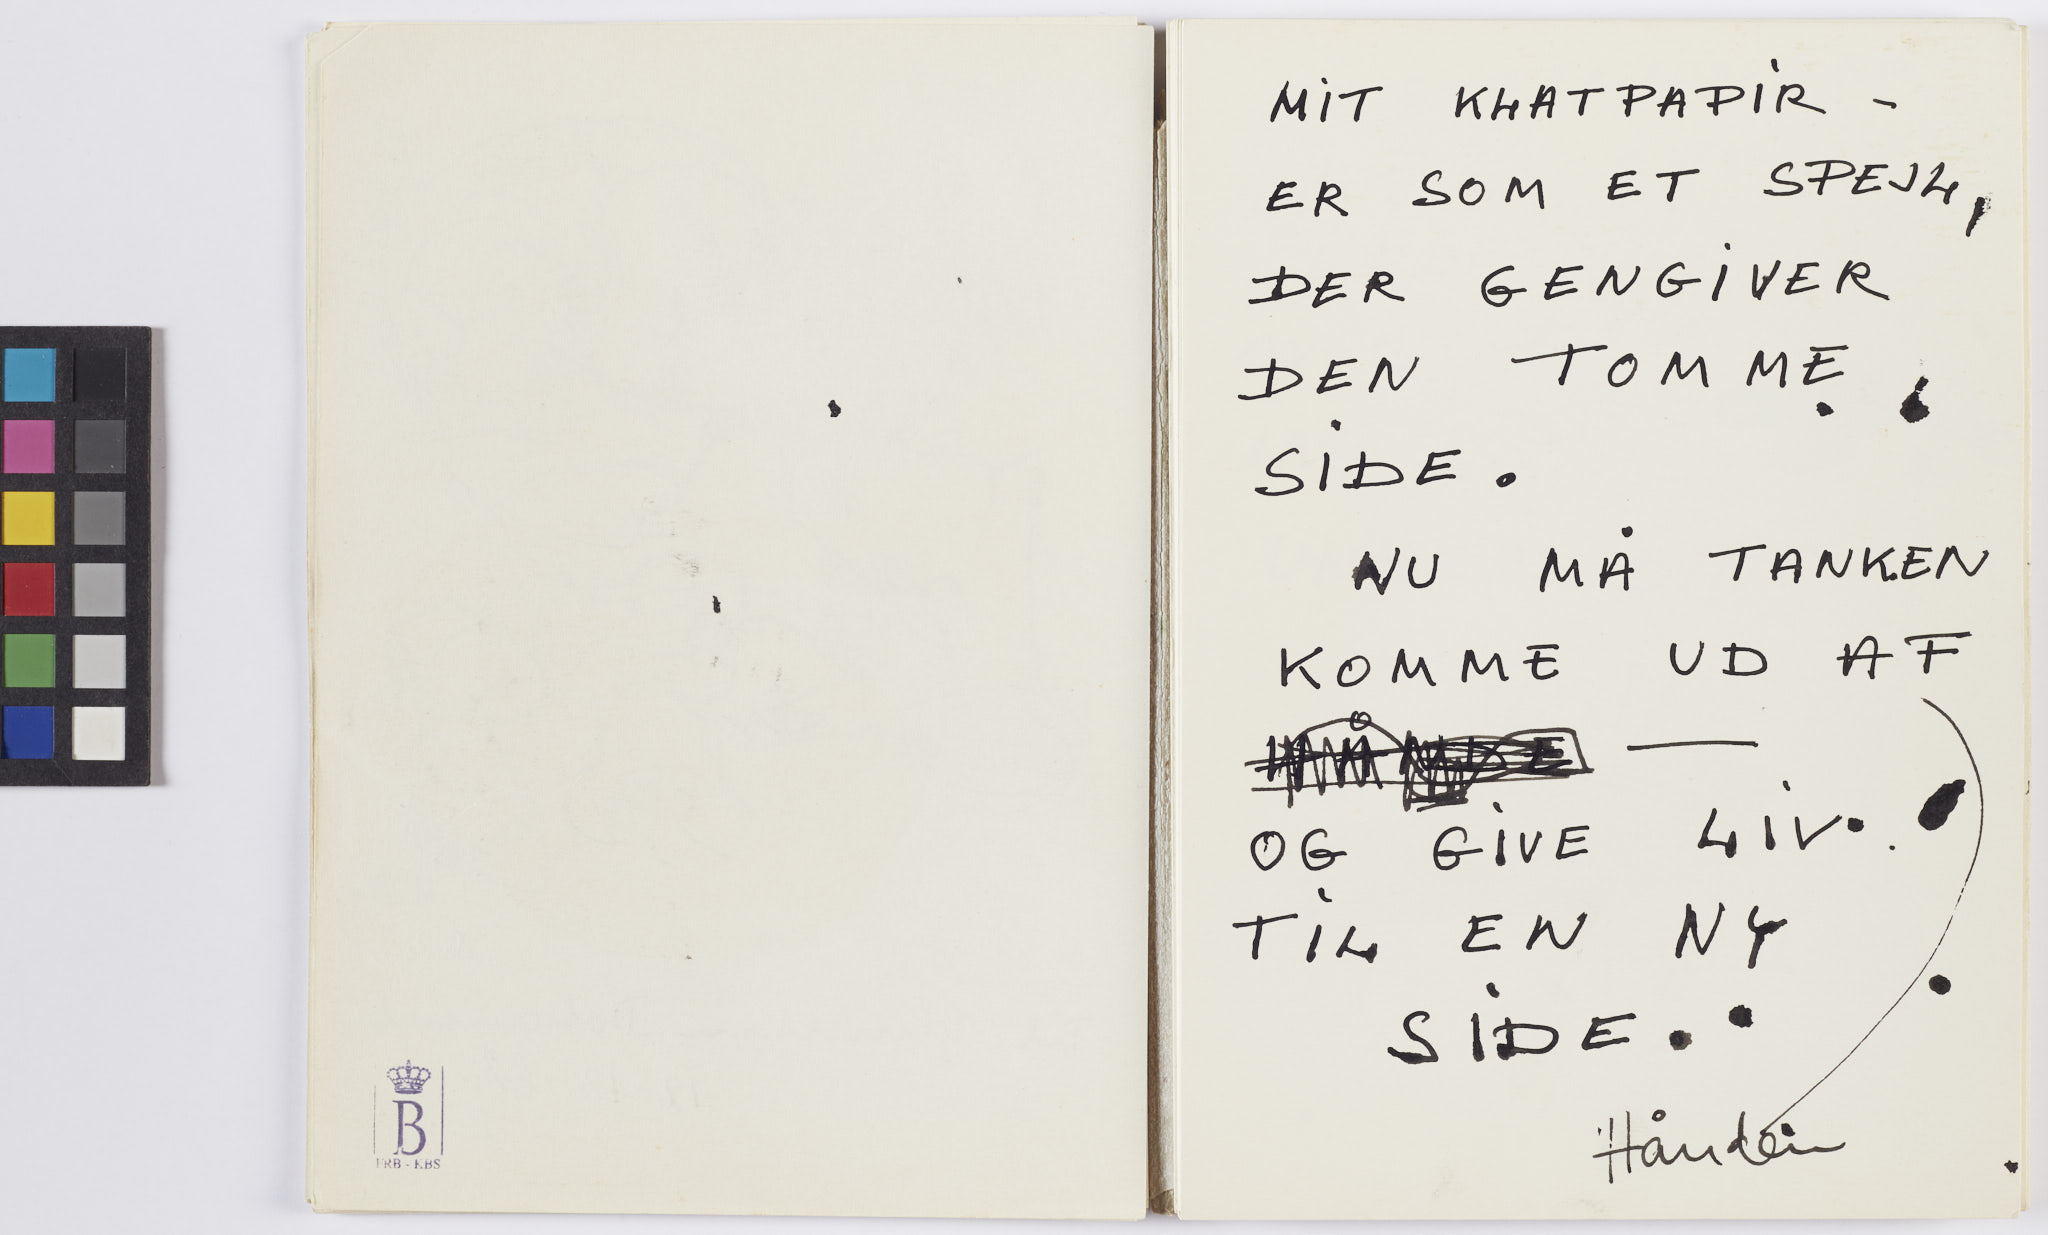 MIT KLATPAPIR -
ER SOM ET SPEJL,
DER GENGIVER
DEN TOMME
SIDE.
NU MÅ TANKEN
KOMME UD AF
—
OG GIVE LIV.
TIL EN NY
SIDE.
Hånden
B
FRB - KBS